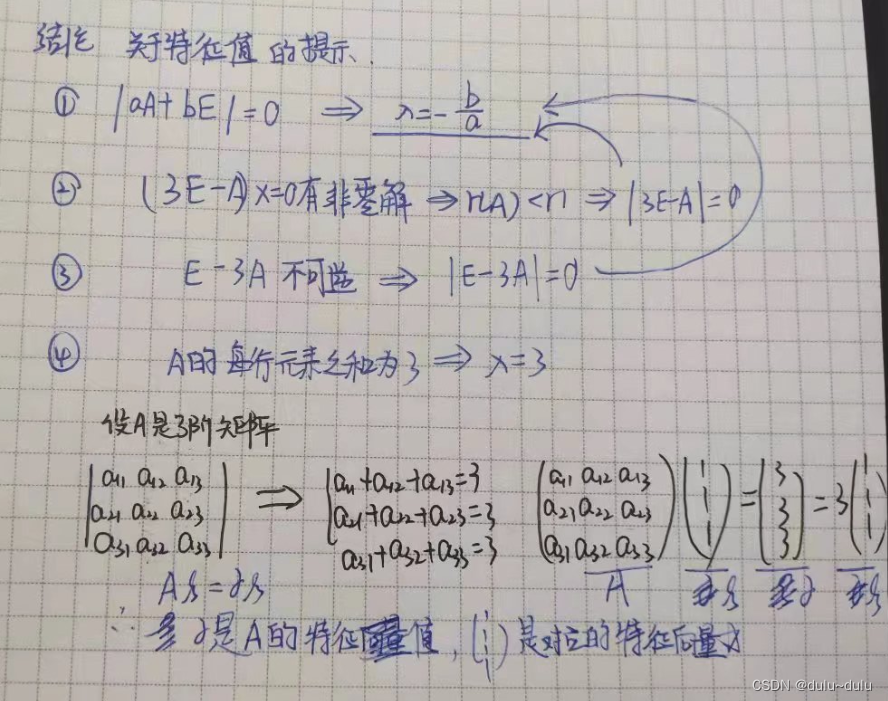 结论 关于特征值的提示、
① |aA+bE|=0 ⇒ λ=-b/a
② (3E-A)x=0有非零解 ⇒ r(A)<n ⇒ |3E-A|=0
③ E-3A 不可逆 ⇒ |E-3A|=0
④ A的每行元素之和为3 ⇒ λ=3
设A是3阶矩阵
|a11 a12 a13| ⇒ a11+a12+a13=3 (a11 a12 a13) (1) = (3) = 3 (1)
|a21 a22 a23| a21+a22+a23=3 (a21 a22 a23) (1) (3) (1)
|a31 a32 a33| a31+a32+a33=3 (a31 a32 a33) (1) (3) (1)
Aξ=λξ A ξ λ ξ
∴ λ是A的特征值,(1 1 1)是对应的特征向量
CSDN @dulu~dulu